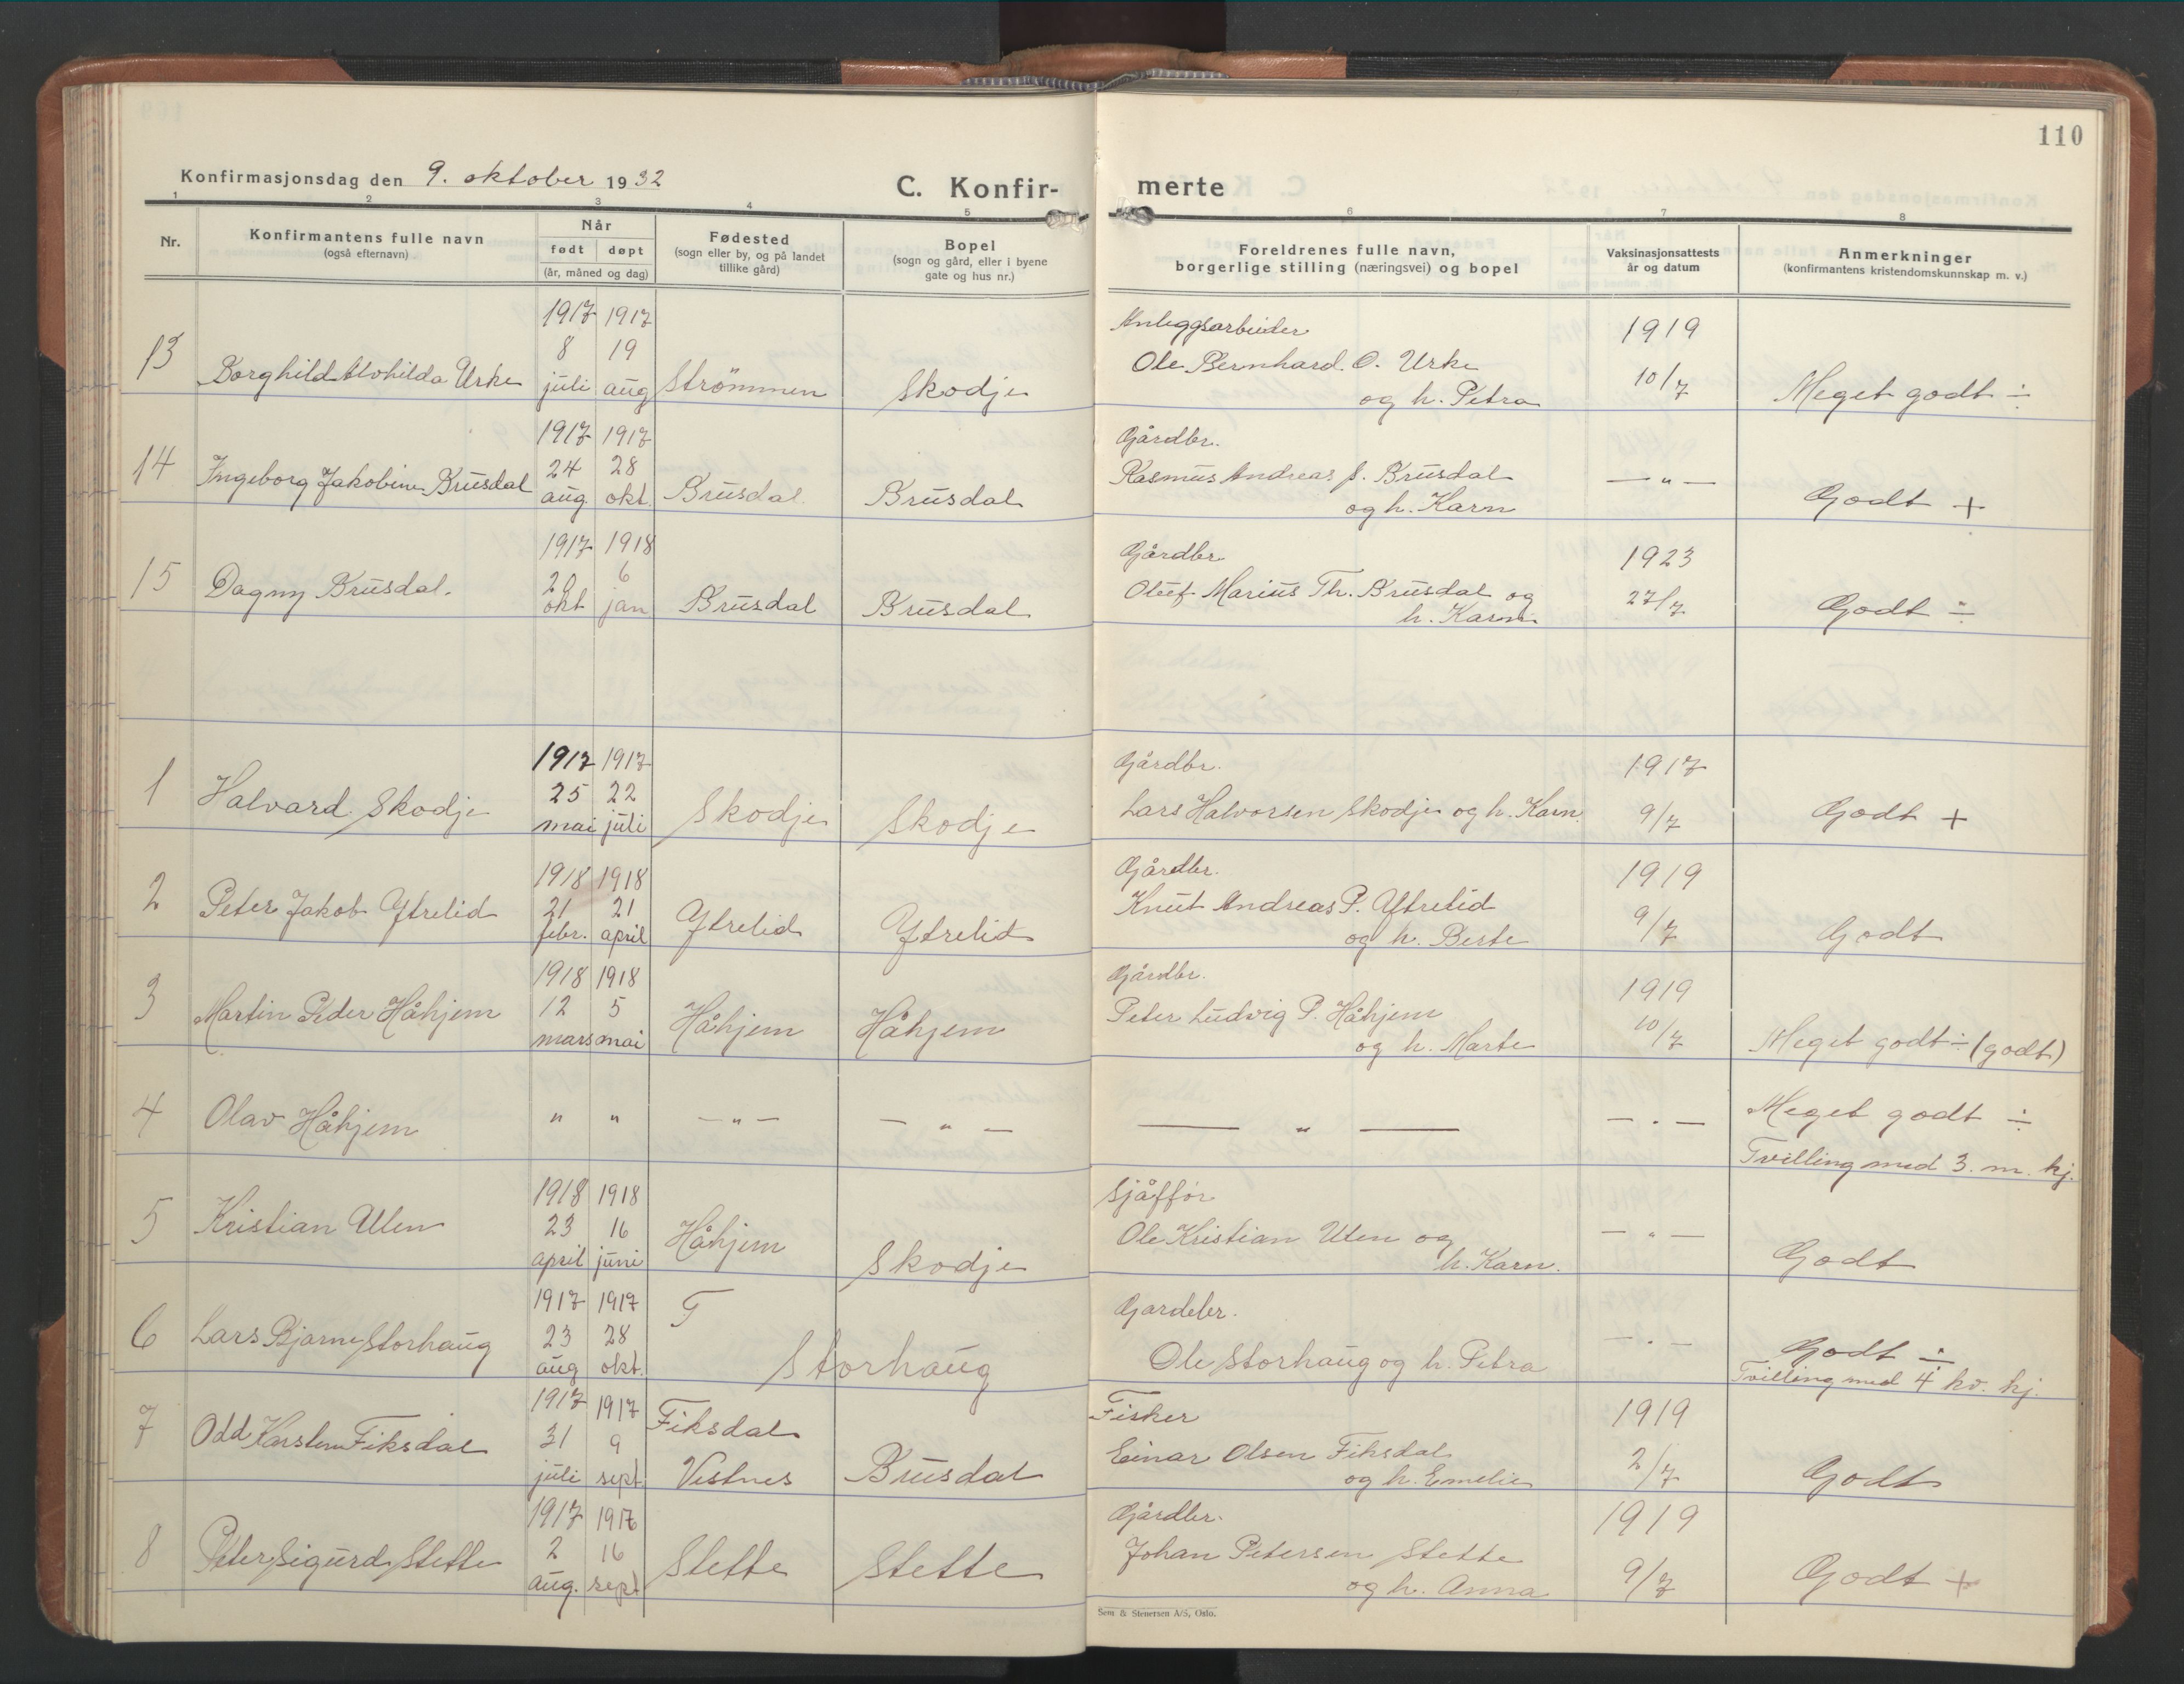 110
Konfirmasjonsdag den 9. oktober 1932
C. Konfir-
merte
1 2 3 4 5 6 7 8
Nr.
Konfirmantens fulle navn
(også efternavn)
Når
født døpt
(år, måned og dag)
Fødested
(sogn eller by, og på landet
tillike gård)
Bopel
(sogn og gård, eller i byene
gate og hus nr.)
Foreldrenes fulle navn,
borgerlige stilling (næringsvei) og bopel
Vaksinasjonsattests
år og datum
Anmerkninger
(konfirmantens kristendomskunnskap m. v.)
1917 1917 Anleggsarbeider 1919
13 8 19 Ole Bernhard. O. Urke 10/7
Borghild Alvhilda Urke juli aug Strömmen Skodje og h. Petra Meget godt ÷
1917 1917 Gårdbr.
14 Ingeborg Jakobine Brusdal 24 28 Rasmus Andreas J. Brusdal — " —
aug okt. Brusdal Brusdal og h. Karn Godt +
1917 1918 Gårdbr. 1923
15 Dagny Brusdal. 20 6 Oluf Marius Th. Brusdal og 27/7
okt jan Brusdal Brusdal h. Karn. Godt ÷
1917 1917 Gårdbr. 1917
1 Halvard Skodje 25 22 Skodje Skodje Lars Halvorsen Skodje og h. Karn. 9/7 Godt +
mai juli
1918 1918 Gårdbr. 1919
2 Peter Jakob Ytrelid 21 21 Ytrelid Ytrelid Knut Andreas P. Ytrelid 9/7
febr. april og h. Berte Godt
1918 1918 Gårdbr. 1919
3 Martin Peder Håhjem 12 5 Håhjem Håhjem Peter Ludvig P. Håhjem 10/7
mars mai og h. Marte Meget godt ÷ (godt)
4 Olav Håhjem " " — " — — " — — " — — " — Meget godt ÷
Tvilling med 3. m. kj.
1918 1918 Sjåffør
5 Kristian Ulen 23 16 Håhjem Ole Kristian Ulen og — " —
april juni Skodje h. Karn. Godt
1917 1917 T Gardebr.
6 Lars Bjarne Storhaug 23 28 — " — Godt ÷
aug okt. Storhaug Ole Storhaug og h. Petra Tvilling med 4 kv. kj.
1917 1917 Fiksdal Fisker 1919
7 Odd Karsten Fiksdal 31 9 Einar Olsen Fiksdal 2/7
juli sept. Vestnes Brusdal og h. Emelie Godt
1917 1917 Gårdbr. 1919
8 Peter Sigurd Stette 2 16 Stette Stette Johan Petersen Stette 9/7 Godt +
aug. sept og h. Anna
Sem & Stenersen A/S, Oslo.